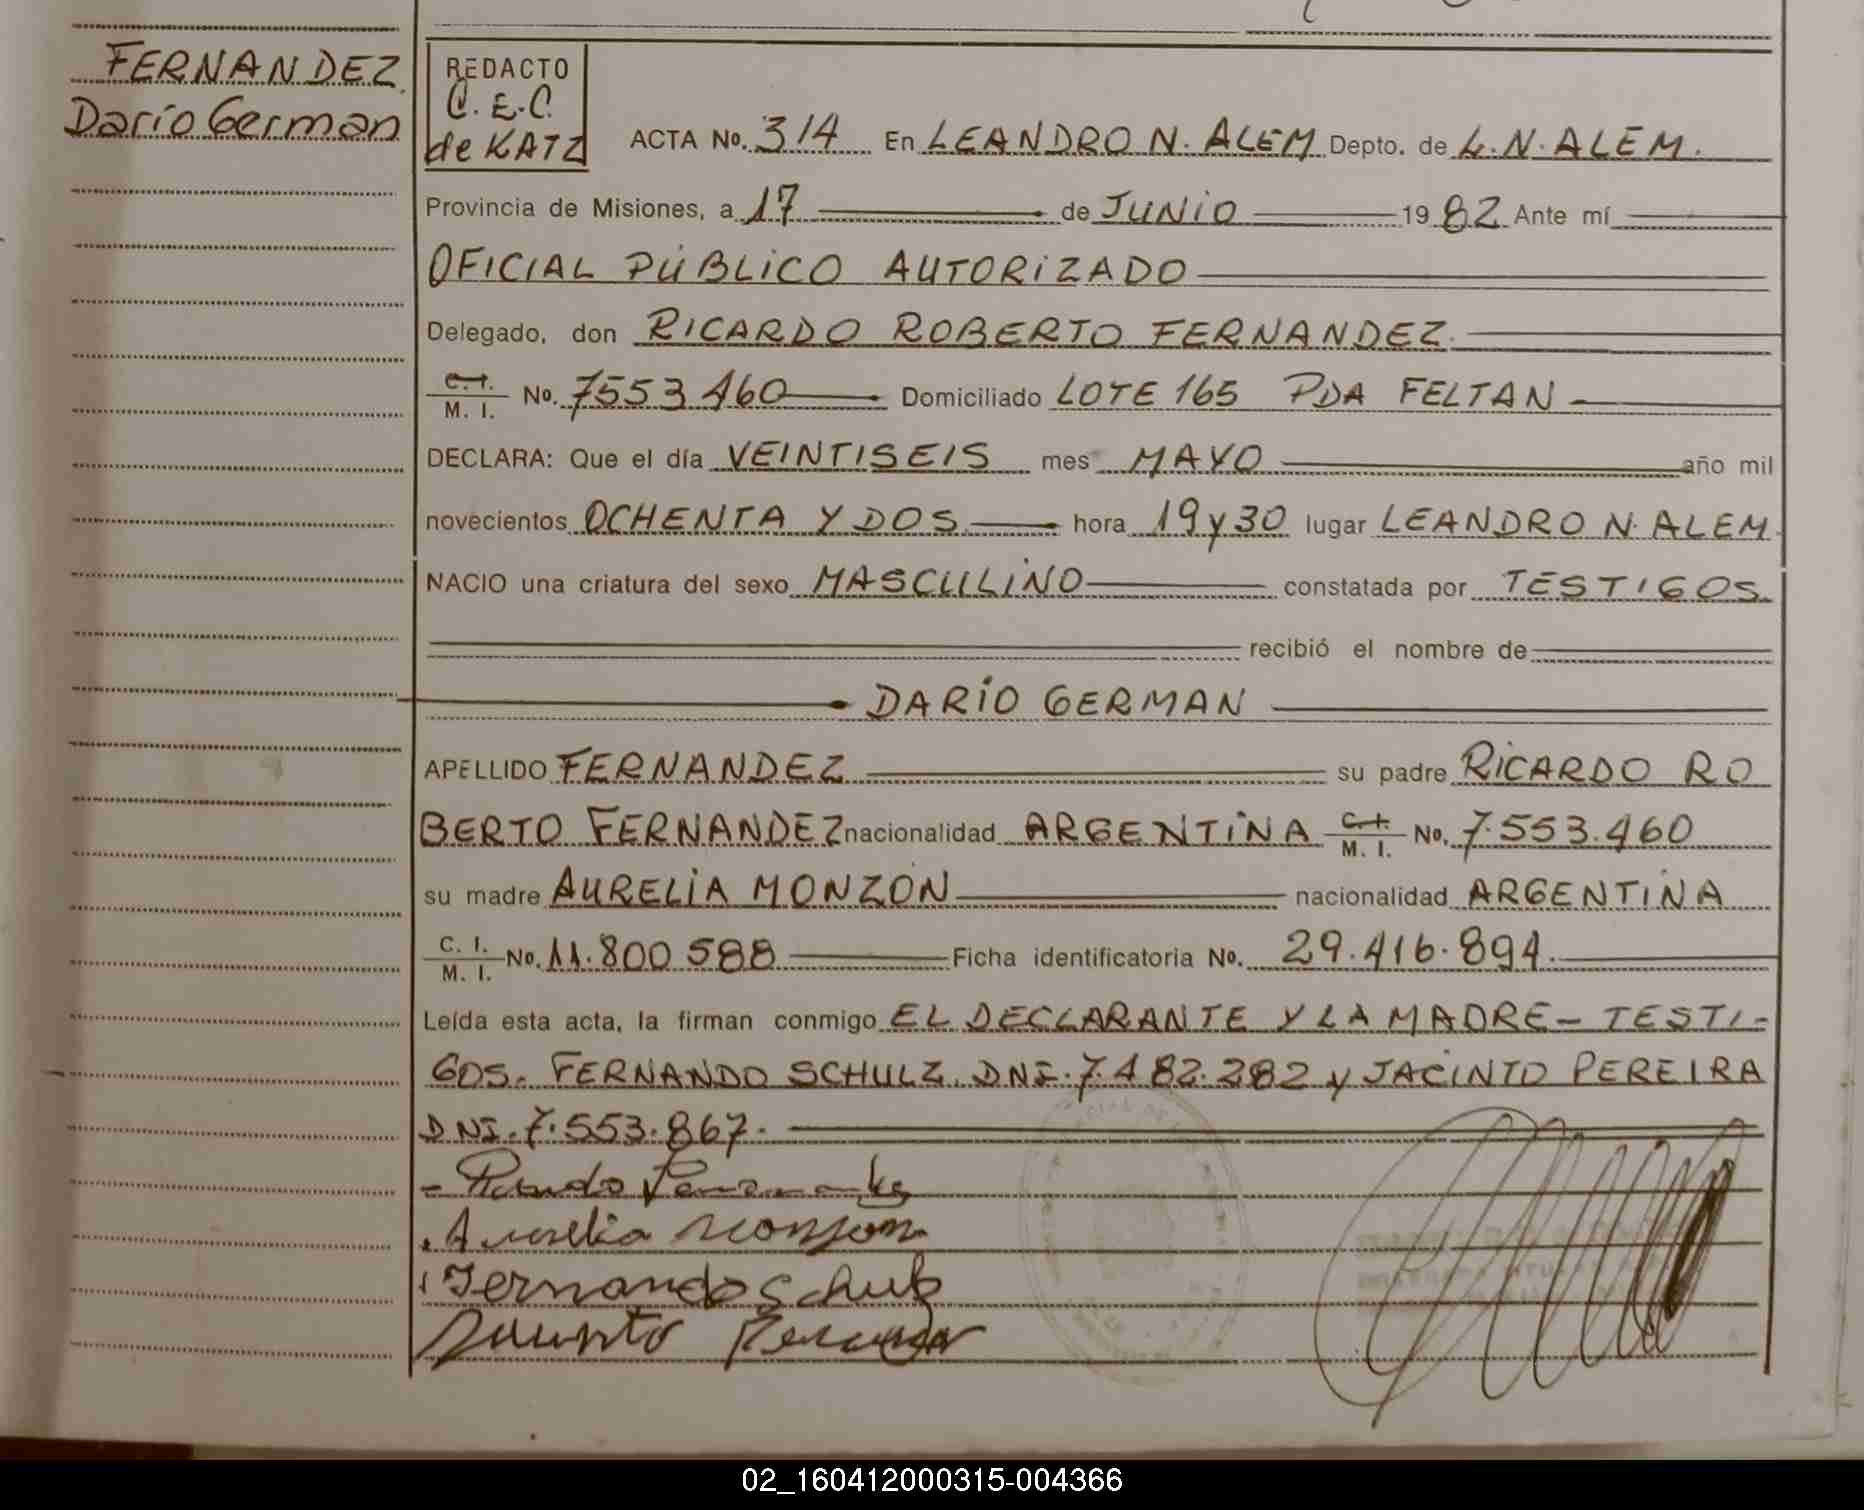 FERNANDEZ
Darío German
REDACTO
C. E. C.
de KATZ
ACTA No. 314 En LEANDRO N. ALEM Depto. de L. N. ALEM.
Provincia de Misiones, a 17 de JUNIO 1982 Ante mí
OFICIAL PÚBLICO AUTORIZADO
Delegado, don RICARDO ROBERTO FERNANDEZ
C. I. M. I. No. 7553460 Domiciliado LOTE 165 PDA FELTAN
DECLARA: Que el día VEINTISEIS mes MAYO año mil
novecientos OCHENTA Y DOS hora 19 y 30 lugar LEANDRO N. ALEM.
NACIO una criatura del sexo MASCULINO constatada por TESTIGOS.
recibió el nombre de
DARÍO GERMAN
APELLIDO FERNANDEZ su padre RICARDO RO
BERTO FERNANDEZ nacionalidad ARGENTINA C. I. M. I. No. 7.553.460
su madre AURELIA MONZON nacionalidad ARGENTINA
C. I. M. I. No. 11.800 588 Ficha identificatoria No. 29.416.894.
Leída esta acta, la firman conmigo EL DECLARANTE Y LA MADRE - TESTI-
GOS. FERNANDO SCHULZ. DNI. 7.482.282 y JACINTO PEREIRA
DNI. 7.553.867.
Aurelia Monson
Fernando Schulz
02_160412000315-004366